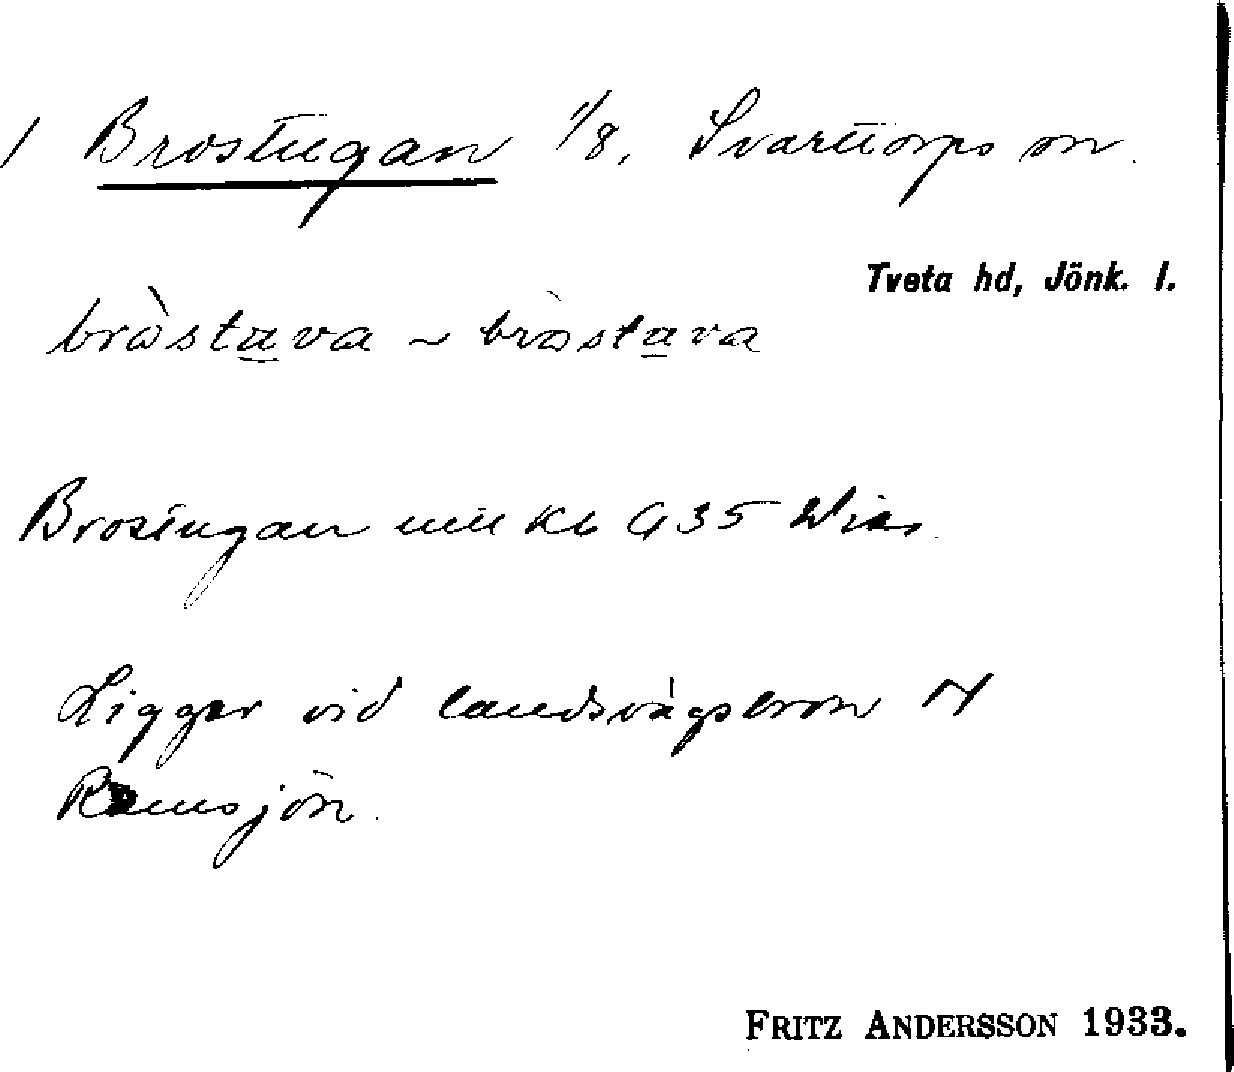 / Brostugan 1/8, Svarttorps sn.
Tveta hd, Jönk. l.
bròstava ~ bròstava
Brostugan Kb G35
Ligger vid landsvägsbron N
Ramsjön.
FRITZ ANDERSSON 1933.